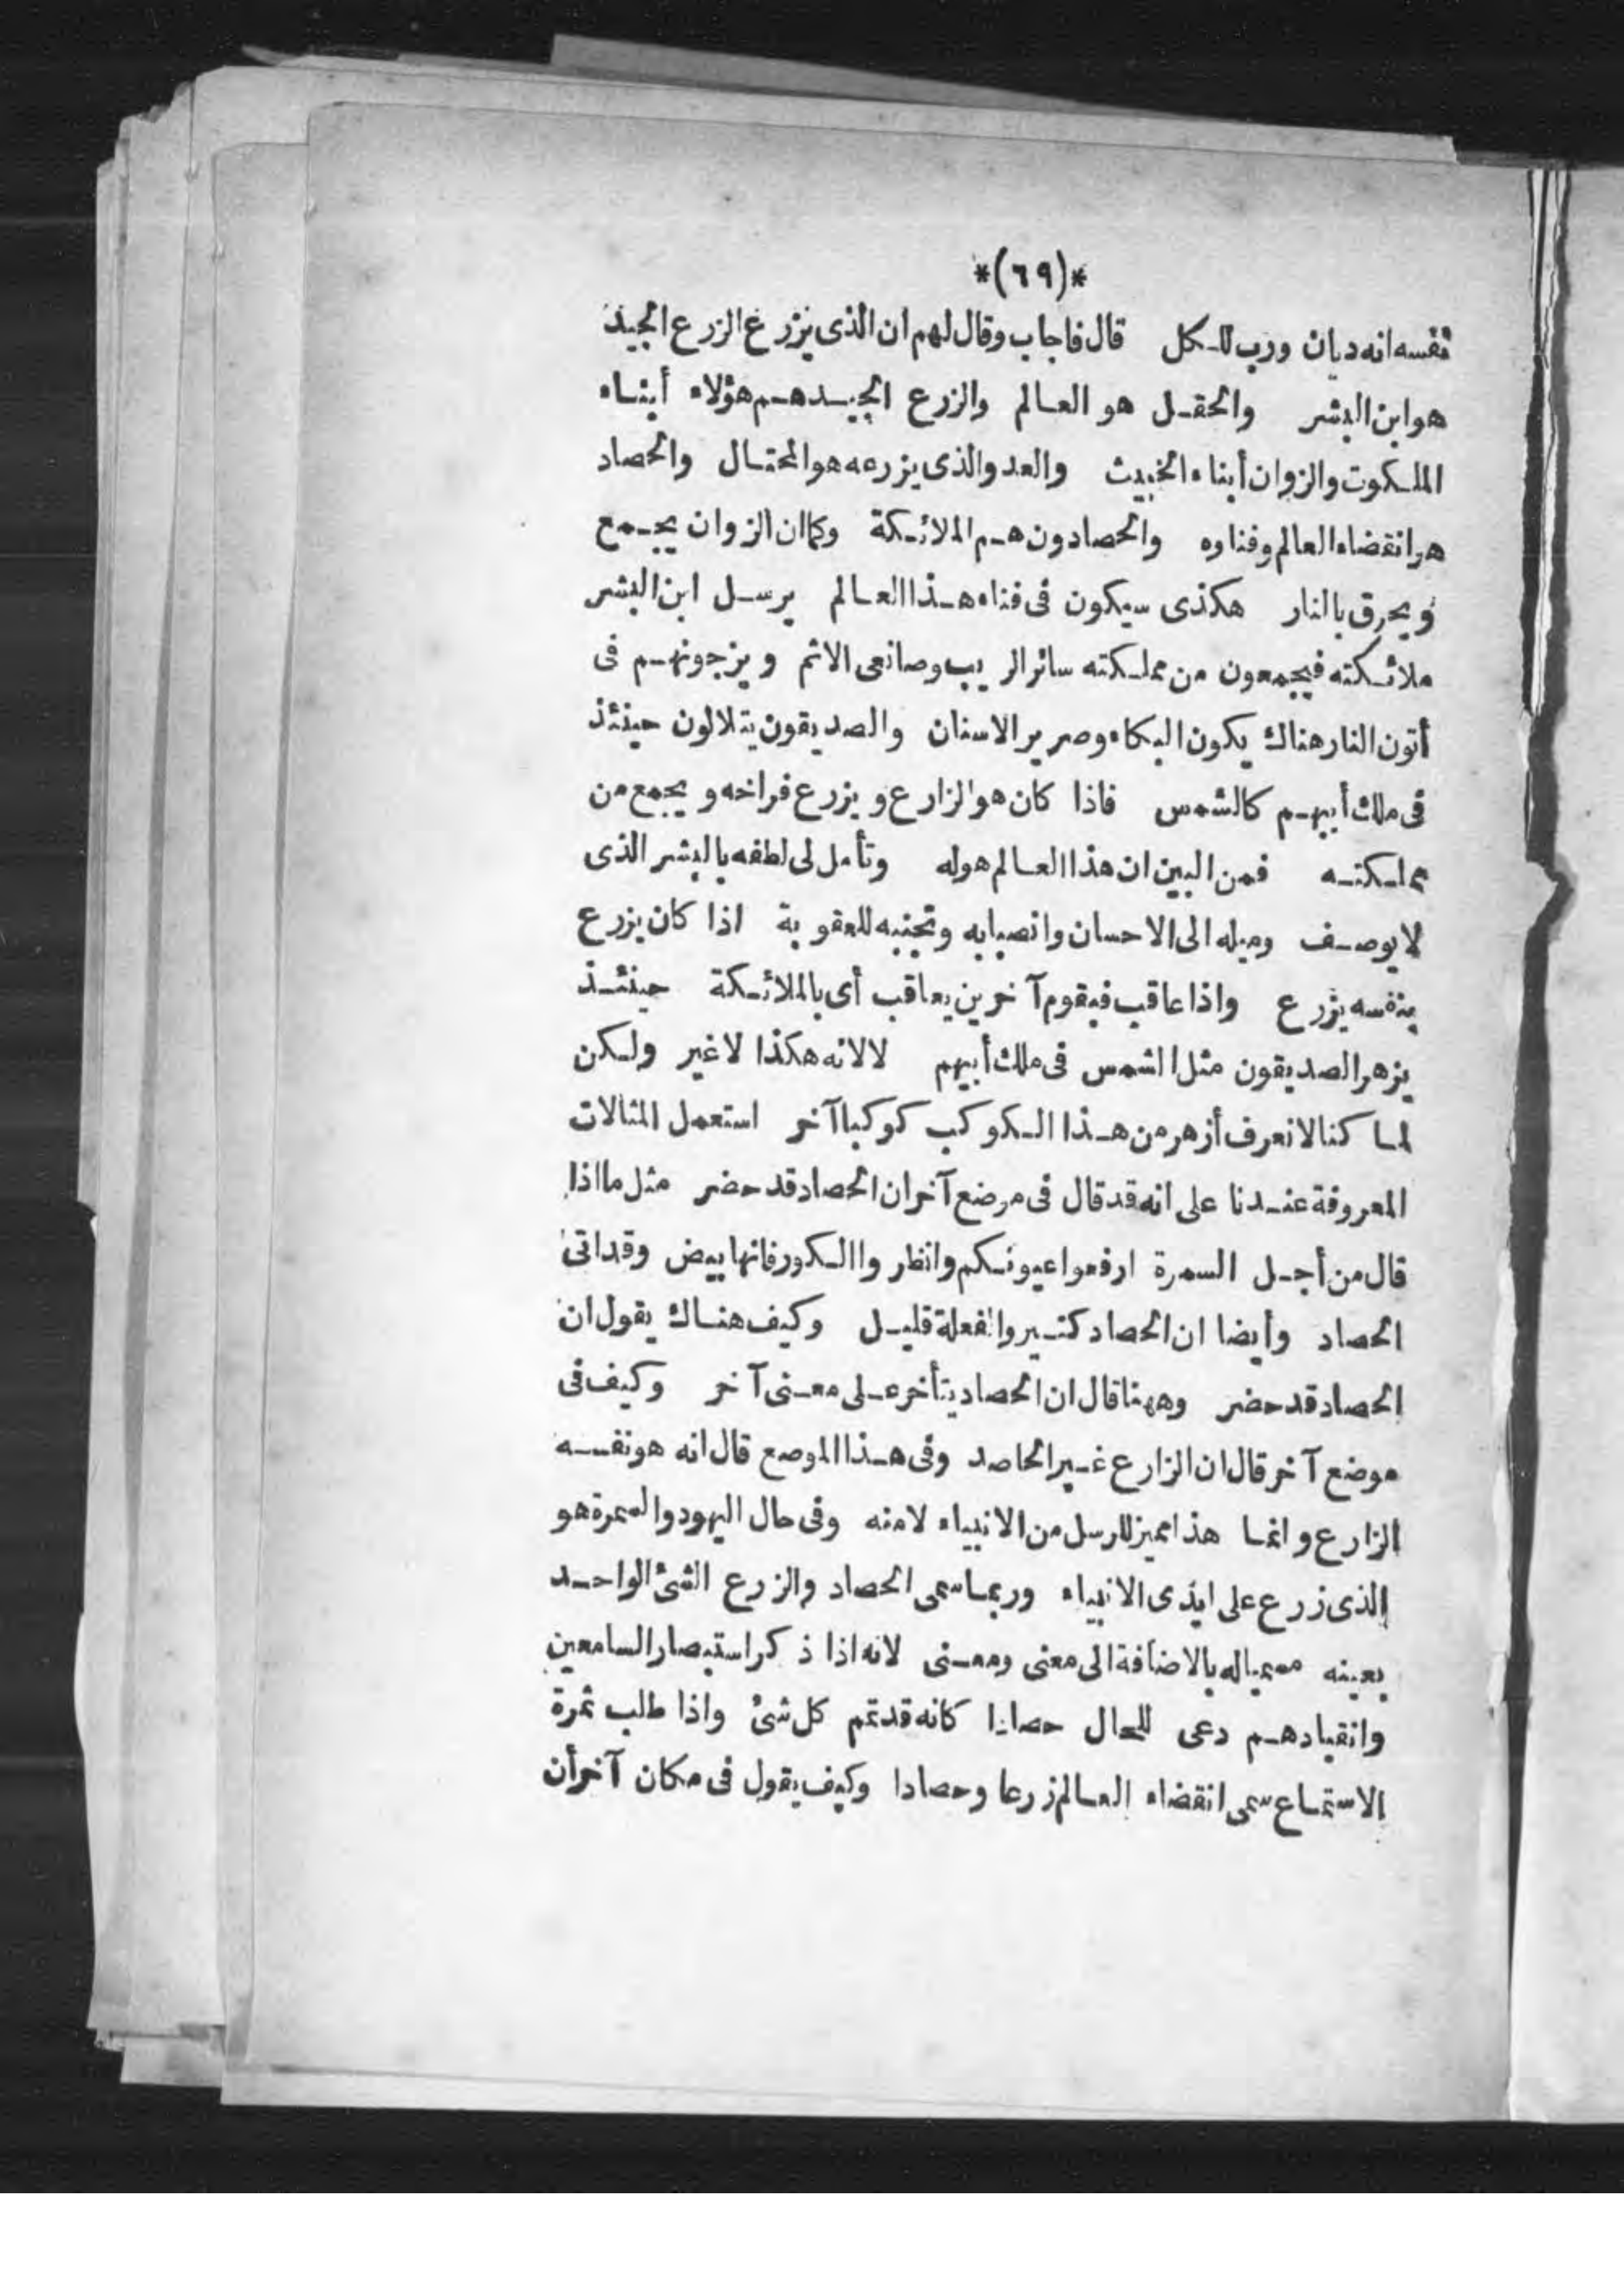 *(٦٩)*
نفسه انه ديان ورب للكل قال فاجاب وقال لهم ان الذى يزرع الزرع الجيد
هو ابن البشر والحقل هو العالم والزرع الجيد هم هؤلاء أبناء
الملكوت والزوان أبناء الخبيث والعدو الذى يزرعه هو المحتال والحصاد
هو انقضاء العالم وفناوه والحصادون هم الملائكة وكما ان الزوان يجمع
ويحرق بالنار هكذى سيكون فى فناء هذا العالم يرسل ابن البشر
ملائكته فيجمعون من مملكته سائر الريب وصانعى الاثم ويزجونهم فى
أتون النار هناك يكون البكاء وصرير الاسنان والصديقون يتلالون حينئذ
فى ملك أبيهم كالشمس فاذا كان هو الزارع ويزرع فراخه ويجمع من
مملكته فمن البين ان هذا العالم هو له وتأمل لى لطفه بالبشر الذى
لا يوصف وميله الى الاحسان وانصبابه وتجنبه للعقوبة اذا كان يزرع
بنفسه يزرع واذا عاقب فيقوم آخرين يعاقب أى بالملائكة حينئذ
يزهر الصديقون مثل الشمس فى ملك أبيهم لا لانه هكذا لا غير ولكن
لما كنا لا نعرف أزهر من هذا الكوكب كوكبا آخر استعمل المثالات
المعروفة عندنا على انه قد قال فى موضع آخر ان الحصاد قد حضر مثل ما اذا
قال من أجل السمرة ارفعوا عيونكم وانظروا الكور فانها بيض وقد اتى
الحصاد وأيضا ان الحصاد كثير والفعلة قليل وكيف هناك يقول ان
الحصاد قد حضر وههنا قال ان الحصاد يتأخر على معنى آخر وكيف فى
موضع آخر قال ان الزارع غير الحاصد وفى هذا الموضع قال انه هو نفسه
الزارع وانما هذا مميز للرسل من الانبياء لا منه وفى حال اليهود والسمرة هو
الذى زرع على ايدى الانبياء وربما سمى الحصاد والزرع الشئ الواحد
بعينه مسميا له بالاضافة الى معنى ومعنى لانه اذا ذكر استبصار السامعين
وانقيادهم دعى للحال حصادا كانه قد تم كل شئ واذا طلب ثمرة
الاستماع سمى انقضاء العالم زرعا وحصادا وكيف يقول فى مكان آخر أن